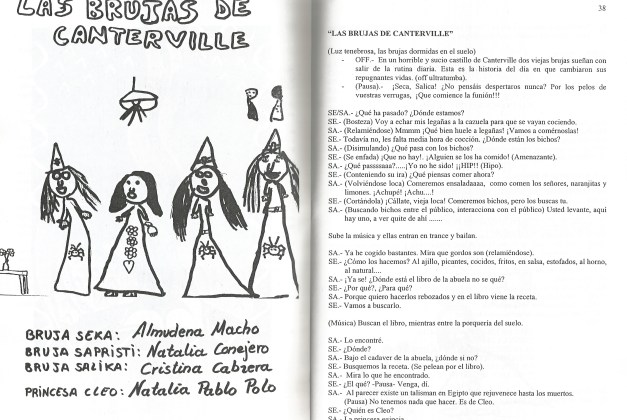 LAS BRUJAS DE
CANTERVILLE
BRUJA SEKA: Almudena Macho
BRUJA SAPRISTI: Natalia Conejero
BRUJA SALIKA: Cristina Cabrera
PRINCESA CLEO: Natalia Pablo Polo
38
“LAS BRUJAS DE CANTERVILLE”
(Luz tenebrosa, las brujas dormidas en el suelo)
- OFF.- En un horrible y sucio castillo de Canterville dos viejas brujas sueñan con
salir de la rutina diaria. Esta es la historia del día en que cambiaron sus
repugnantes vidas. (off ultratumba).
- (Pausa).- ¡Seca, Salica! ¿No pensáis despertaros nunca? Por los pelos de
vuestras verrugas, ¡Que comience la funión!!!
SE/SA.- ¿Qué ha pasado? ¿Dónde estamos?
SE.- (Bosteza) Voy a echar mis legañas a la cazuela para que se vayan cociendo.
SA.- (Relamiéndose) Mmmm ¡Qué bien huele a legañas! ¡Vamos a comérnoslas!
SE.- Todavía no, les falta media hora de cocción. ¿Dónde están los bichos?
SA.- (Disimulando) ¿Qué pasa con los bichos?
SE.- (Se enfada) ¡Que no hay!. ¡Alguien se los ha comido! (Amenazante).
SA.- ¿Qué passssaaa?.....¡Yo no he sido! ¡¡HIP!! (Hipo).
SE.- (Conteniendo su ira) ¿Qué piensas comer ahora?
SA.- (Volviéndose loca) Comeremos ensaladaaaa, como comen los señores, naranjitas y
limones. ¡Achupé! ¡Achu....!
SE.- (Cortándola) ¡Cállate, vieja loca! Comeremos bichos, pero los buscas tu.
SA.- (Buscando bichos entre el público, interacciona con el público) Usted levante, aquí
hay uno, a ver quite de ahí .......
Sube la música y ellas entran en trance y bailan.
SA.- Ya he cogido bastantes. Mira que gordos son (relamiéndose).
SE.- ¿Cómo los hacemos? Al ajillo, picantes, cocidos, fritos, en salsa, estofados, al horno,
al natural....
SA.- ¡Ya se! ¿Dónde está el libro de la abuela no se qué?
SE.- ¿Por qué?, ¿Para qué?
SA.- Porque quiero hacerlos rebozados y en el libro viene la receta.
SE.- Vamos a buscarlo.
(Música) Buscan el libro, mientras entre la porquería del suelo.
SA.- Lo encontré.
SE.- ¿Dónde?
SA.- Bajo el cadaver de la abuela, ¿dónde si no?
SE.- Busquemos la receta. (Se pelean por el libro).
SA.- Mira lo que he encontrado.
SE.- ¿El qué? -Pausa- Venga, dí.
SA.- Al parecer existe un talisman en Egipto que rejuvenece hasta los muertos.
(Pausa) No tenemos nada que hacer. Es de Cleo.
SE.- ¿Quién es Cleo?
SA.- La princesa egipcia